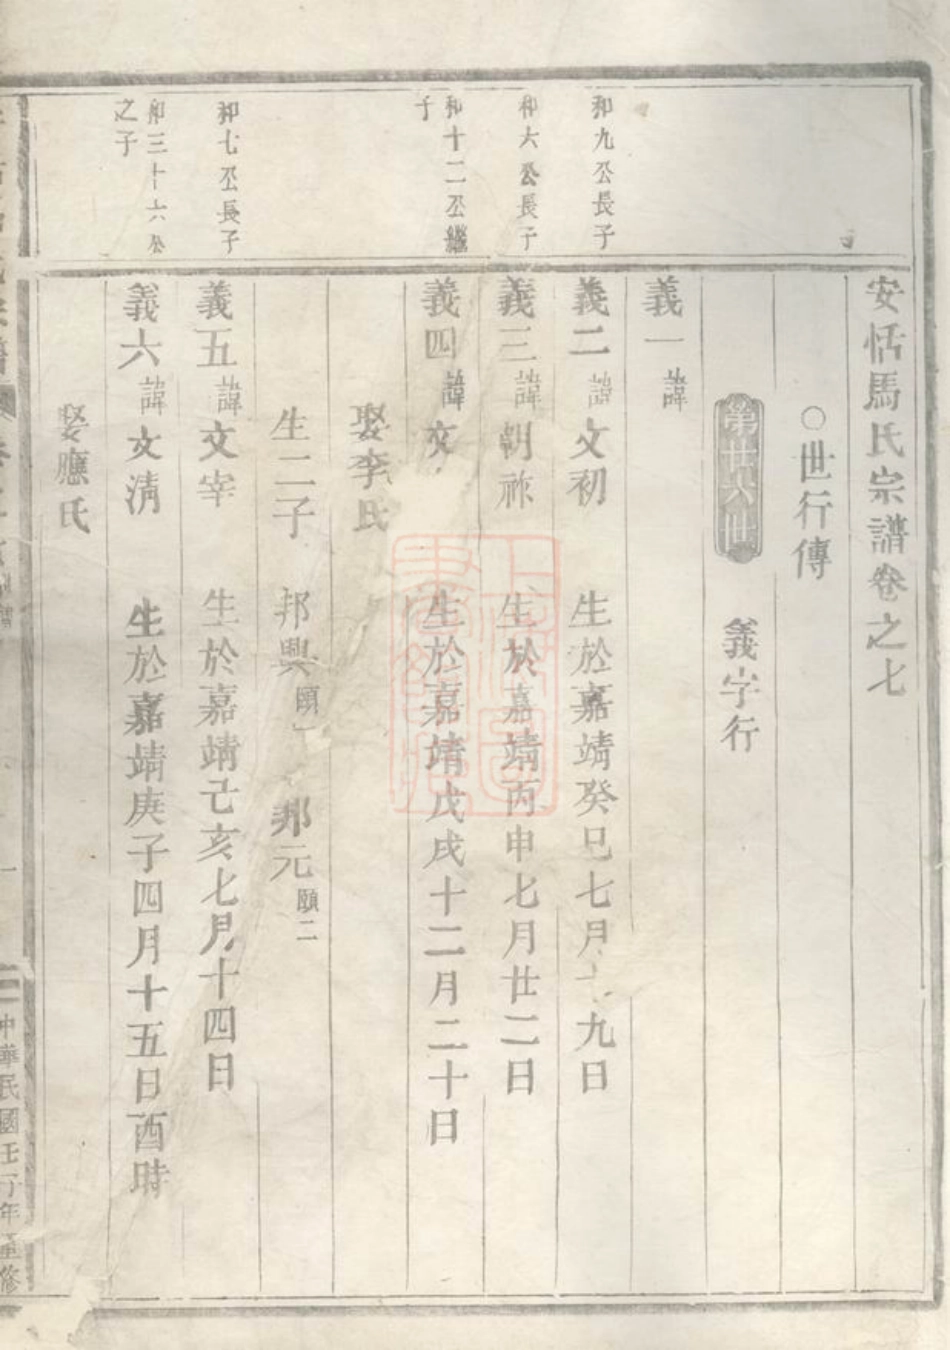 安恬馬氏宗譜卷之七
○世行傳
第廿八世 義字行
義一諱
和九公長子
義二諱文初 生於嘉靖癸巳七月十九日
和六公長子
義三諱朝祚 生於嘉靖丙申七月廿二日
和十二公繼子
義四諱文 生於嘉靖戊戌十二月二十日
娶李氏
生二子 邦興頤一 邦元頤二
和七公長子
義五諱文宰 生於嘉靖己亥七月十四日
和三十六公之子
義六諱文清 生於嘉靖庚子四月十五日酉時
娶應氏
中華民國壬子年重修